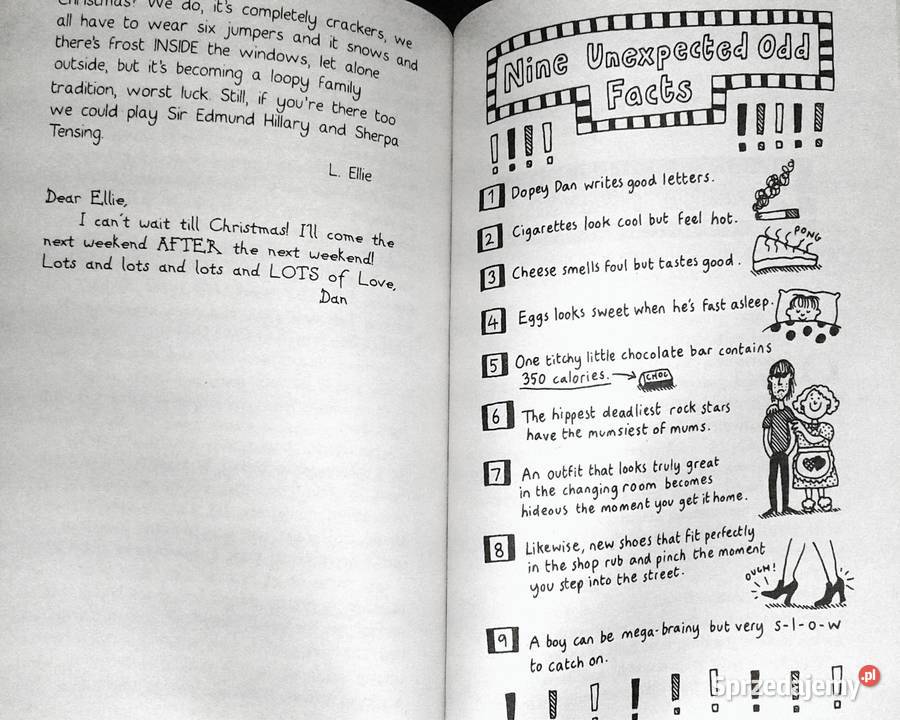 Christmas? We do, it's completely crackers, we
all have to wear six jumpers and it snows and
there's frost INSIDE the windows, let alone
outside, but it's becoming a loopy family
tradition, worst luck. Still, if you're there too
we could play Sir Edmund Hillary and Sherpa
Tensing.
L. Ellie
Dear Ellie,
I can't wait till Christmas! I'll come the
next weekend AFTER the next weekend!
Lots and lots and lots and LOTS of Love,
Dan
Nine Unexpected Odd
Facts
1 Dopey Dan writes good letters.
2 Cigarettes look cool but feel hot.
PONG
3 Cheese smells foul but tastes good.
4 Eggs looks sweet when he's fast asleep.
5 One titchy little chocolate bar contains
350 calories.
CHOC
6 The hippest deadliest rock stars
have the mumsiest of mums.
7 An outfit that looks truly great
in the changing room becomes
hideous the moment you get it home.
8 Likewise, new shoes that fit perfectly
in the shop rub and pinch the moment
you step into the street.
OUCH!
9 A boy can be mega-brainy but very s-l-o-w
to catch on.
Sprzedajemy.pl